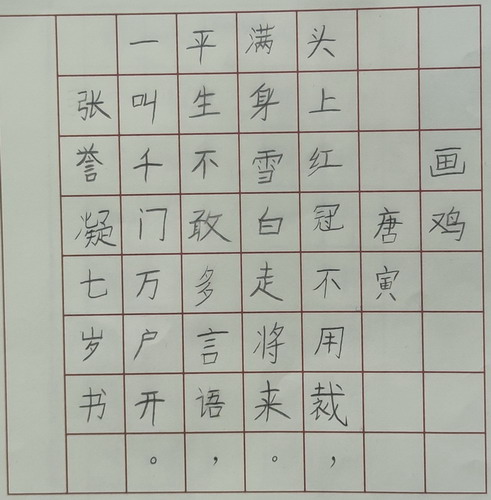 画鸡
唐寅
头上红冠不用裁，
满身雪白走将来。
平生不敢多言语，
一叫千门万户开。
张誉凝七岁书